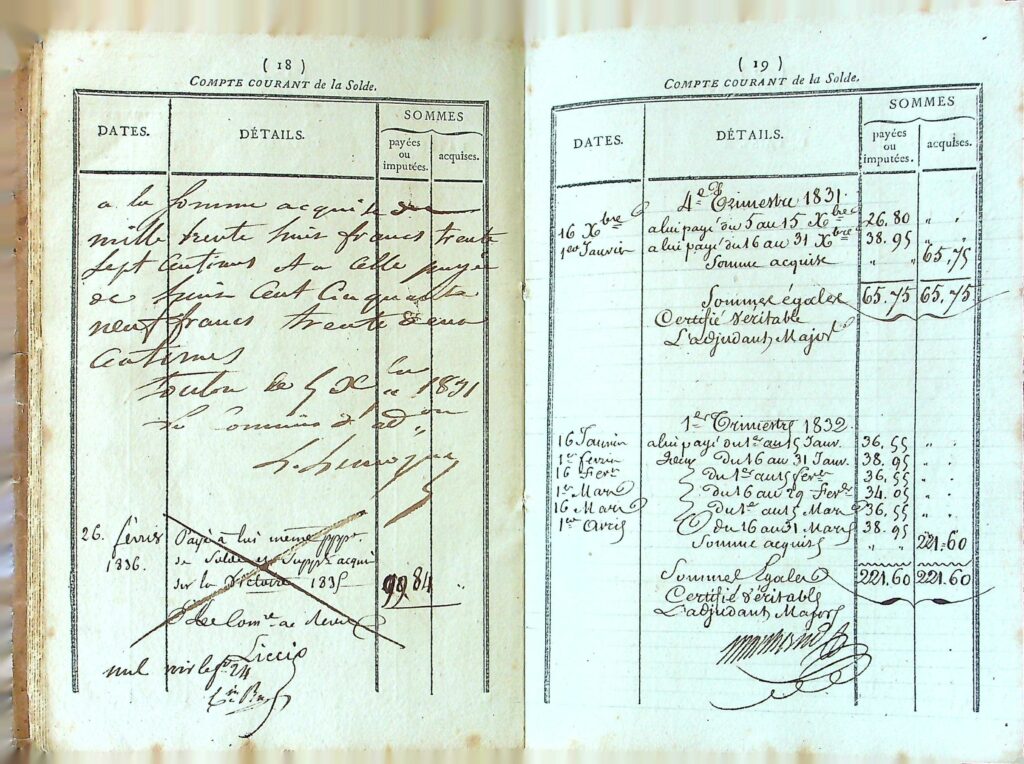 ( 18 )
COMPTE COURANT de la Solde.
DATES.
DÉTAILS.
SOMMES
payées ou imputées.
acquises.
a la somme acquise de
mille trente huit francs trente
sept centimes et a celle payée
de huit cent cinquante
neuf francs trente deux
centimes
Toulon le 5 X bre 1831
Le Commis d' adon
26. février Payé à lui même pppt
1836. de Solde et Suppt acquis
sur la Victoire 1835 99 84 "
nul voir le fo 24
( 19 )
COMPTE COURANT de la Solde.
DATES.
DÉTAILS.
SOMMES
payées ou imputées.
acquises.
4e Trimestre 1831
16 Xbre a lui payé du 5 au 15 Xbre 26.80 " "
1er Janvier a lui payé du 16 au 31 Xbre 38.95 "
Somme acquise " " 65.75
Sommes égales 65.75 65.75
Certifié Véritable
L'adjudant Major
1er Trimestre 1832
16 Janvier a lui payé du 1er au 15 Janv. 36,55 " "
1er Févrie du 16 au 31 Janv. 38.95 " "
16 Fevr du 1er au 15 fevr 36,55 " "
1er Mars du 16 au 29 Fevr 34.05 " "
16 Mars du 1er au 15 Mars 36,55 " "
1er Avril du 16 au 31 Mars 38.95 "
Somme acquise " " 221.60
Sommes Egales 221.60 221.60
Certifié Véritable
L'adjudant Major